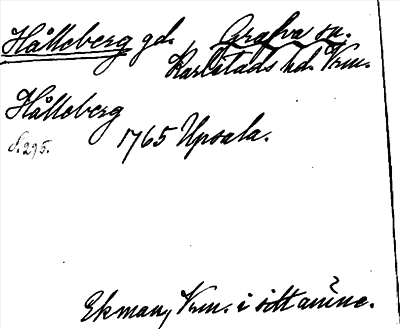 Hålleberg gd. Grafva sn.
Karlstads hd. Vrm.
Hålleberg
S. 295. 1765 Upsala.
Ekman, Vrm. i sitt ämne.